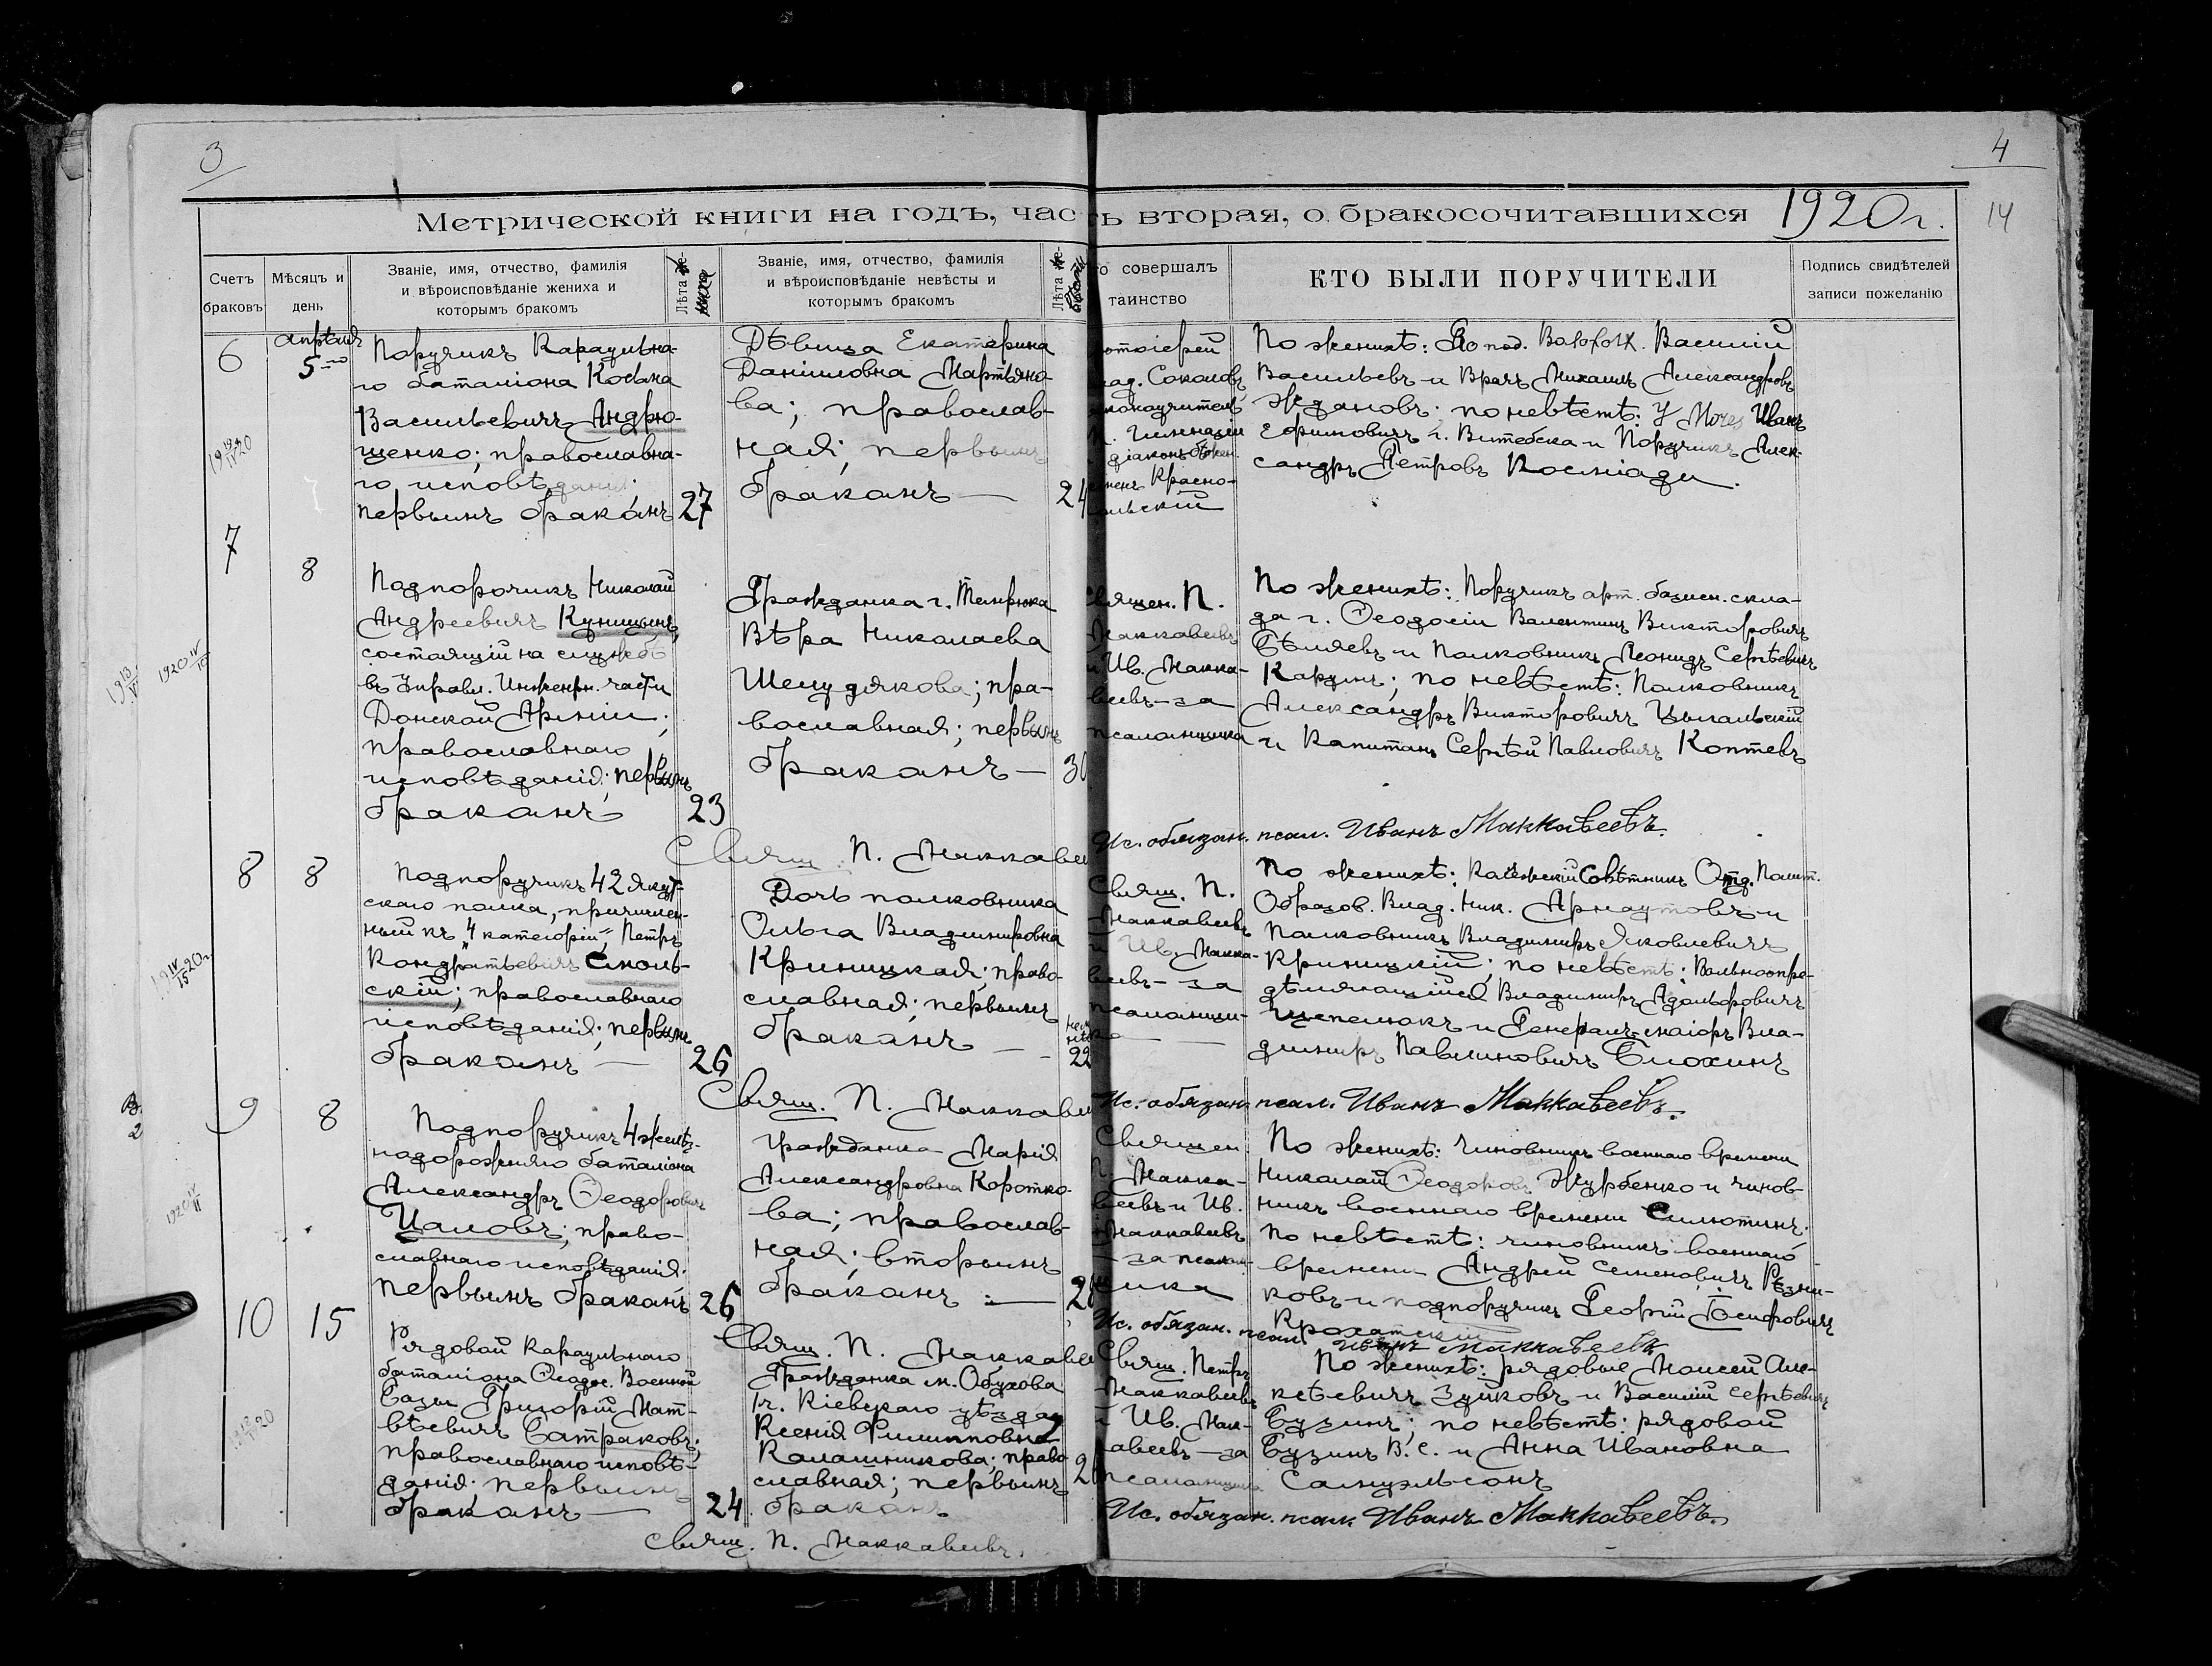 3
4
14
Метрической книги на годъ, часть вторая, о бракосочитавшихся 1920 г.
Счетъ браковъ
Мѣсяцъ и день
Званіе, имя, отчество, фамилія
и вѣроисповѣданіе жениха и
которымъ бракомъ
Лѣта жениха
Званіе, имя, отчество, фамилія
и вѣроисповѣданіе невѣсты и
которымъ бракомъ
Лѣта
о совершалъ
таинство
КТО БЫЛИ ПОРУЧИТЕЛИ
Подпись свидѣтелей
записи пожеланію
6
апрѣля
5
Поручикъ Караульна-
го баталіона Косьма
Васильевичъ Андрю-
щенко; православна-
го исповѣданія;
первымъ бракомъ 27
Дѣвица Екатерина
Даніиловна Мартьяно-
ва; православ-
ная; первымъ
бракомъ — 24
отоіерей
ад. Соколовъ
законоучитель
Гимназіи
діаконъ
Красно-
льскій
По женихѣ: Василій
Васильевъ и Врачъ Михаилъ Александровъ
Ждановъ; по невѣстѣ: Иванъ
Ефимовичъ г. Витебска и Поручикъ Алек-
сандръ Петровъ Космiади.
7
8
Подпорочикъ Николай
Андреевичъ Куницынъ,
состоящій на службѣ
въ Управл. Инженерн. части
Донской Арміи;
православнаго
исповѣданія; первымъ
бракомъ 23
Гражданка г. Темрюка
Вѣра Николаева
Шелудякова; пра-
вославная; первымъ
бракомъ — 30
Священ. П.
Маккавеевъ
и Ив. Макка-
веевъ — за
псаломщика
По женихѣ: Поручикъ арт. базисн. скла-
да г. Ѳеодосіи Валентинъ Викторовичъ
Бѣляевъ и Полковникъ Леонидъ Сергѣевичъ
Карринъ; по невѣстѣ: Полковникъ
Александръ Викторовичъ Цыгальскій
и Капитанъ Сергѣй Павловичъ Коптевъ
Свящ. П. Маккавеевъ
Ис. обязан. псал. Иванъ Маккавеевъ.
8
8
Подпоручикъ 42 Якут-
скаго полка, причислен-
ный къ „4 категоріи“, Петръ
Кондратьевичъ Смоль-
скій; православнаго
исповѣданія; первымъ
бракомъ — 26
Дочь полковника
Ольга Владимировна
Криницкая; право-
славная; первымъ
бракомъ — 22
Свящ. П.
Маккавеевъ
и Ив. Макка-
веевъ — за
псаломщи-
ка
По женихѣ: Совѣтникъ Отд. Почт.
Образов. Влад. Ник. Арнаутовъ и
Полковникъ Владимиръ Яковлевичъ
Криницкій; по невѣстѣ: Вольноопре-
дѣляющійся Владимиръ Адольфовичъ
Щепелюкъ и Генералъ-маіоръ Вла-
димиръ Павлиновичъ Блохинъ
Свящ. П. Маккавеевъ
Ис. обязан. псал. Иванъ Маккавеевъ.
9
8
Подпоручикъ 4 желѣз-
нодорожняго баталіона
Александръ Ѳеодоровичъ
Цаловъ; право-
славнаго исповѣданія;
первымъ бракомъ 26
Гражданка Марія
Александровна Коротко-
ва; православ-
ная; вторымъ
бракомъ —
Священ.
Макка-
веевъ и Ив.
Маккавеевъ
— за псалом-
щика
По женихѣ: Чиновникъ военнаго времени
Николай Ѳеодоровъ Журбенко и чинов-
никъ военнаго времени Силютинъ;
по невѣстѣ: чиновникъ военнаго
времени Андрей Семеновичъ Рѣзни-
ковъ и подпоручикъ Георгій Іосифовичъ
Крохатскій
Свящ. П. Маккавеевъ
Ис. обязан. псал. Иванъ Маккавеевъ
10
15
Рядовой Караульнаго
баталіона Ѳеодос. Военной
Базы Григорій Мат-
вѣевичъ Батраковъ;
православнаго исповѣ-
данія; первымъ
бракомъ — 24
Гражданка м. Обухова
Кіевскаго уѣзда
Ксенія Филипповна
Калашникова; право-
славная; первымъ
бракомъ
Свящ. Петръ
Маккавеевъ
и Ив. Мак-
кавеевъ — за
псаломщика
По женихѣ: рядовые Моисей Але-
ксѣевичъ Зуйковъ и Василій Сергѣевичъ
Бузинъ; по невѣстѣ: рядовой
Бузинъ В. С. и Анна Ивановна
Самуэльсонъ
Свящ. П. Маккавеевъ.
Ис. обязан. псал. Иванъ Маккавеевъ.